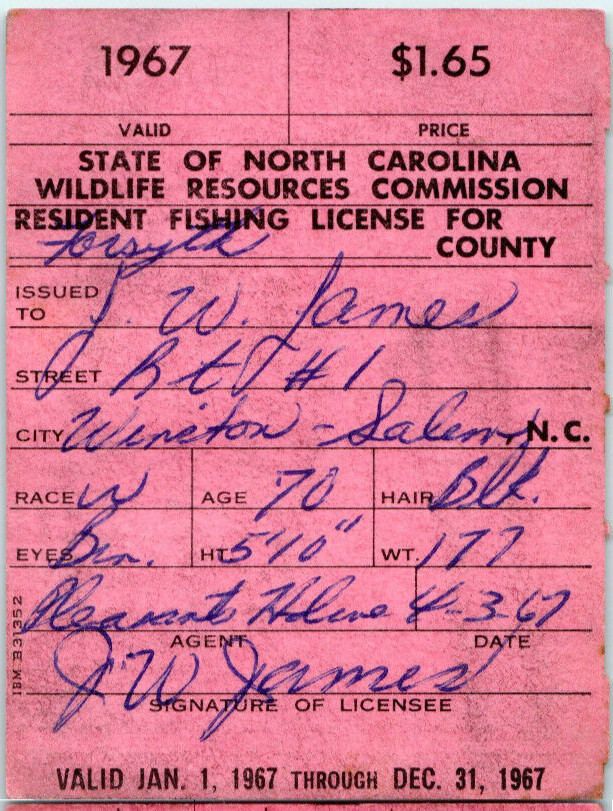 1967 $1.65
VALID PRICE
STATE OF NORTH CAROLINA
WILDLIFE RESOURCES COMMISSION
RESIDENT FISHING LICENSE FOR
Forsyth COUNTY
ISSUED TO J. W. James
STREET Rt #1
CITY Winston-Salem, N.C.
RACE W AGE 70 HAIR Blk.
EYES Brn. HT 5'10" WT. 177
Pleasants 4-3-67
AGENT DATE
J W James
SIGNATURE OF LICENSEE
IBM B31352
VALID JAN. 1, 1967 THROUGH DEC. 31, 1967